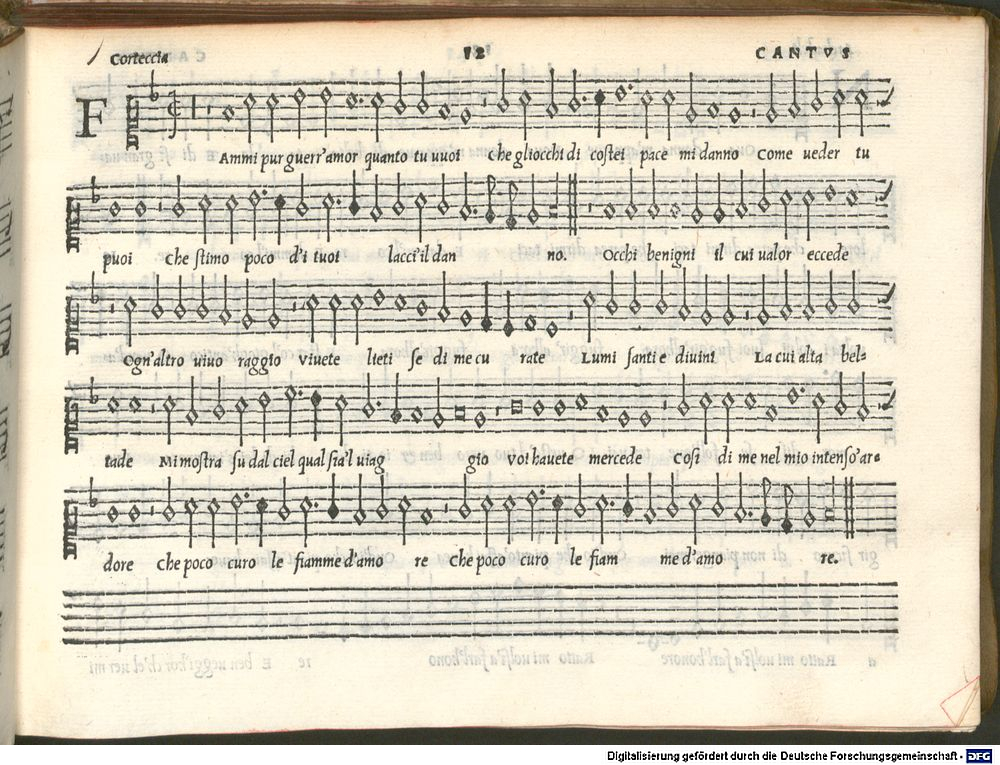 Corteccia 12 CANTVS
FAmmi pur guerr'amor quanto tu uuoi Che gliocchi di costei pace mi danno Come ueder tu
puoi Che stimo poco d'i tuoi lacci'il dan no. Occhi benigni il cui ualor eccede
Ogn'altro uiuo raggio viuete lieti se di me cu rate Lumi santi e diuini La cui alta bel=
tade Mi mostra su dal ciel qual sia'l uiag gio voi hauete mercede Cosi di me nel mio intenso'ar=
dore Che poco curo le fiamme d'amo re Che poco curo le fiam me d'amo re.
Digitalisierung gefördert durch die Deutsche Forschungsgemeinschaft - DFG